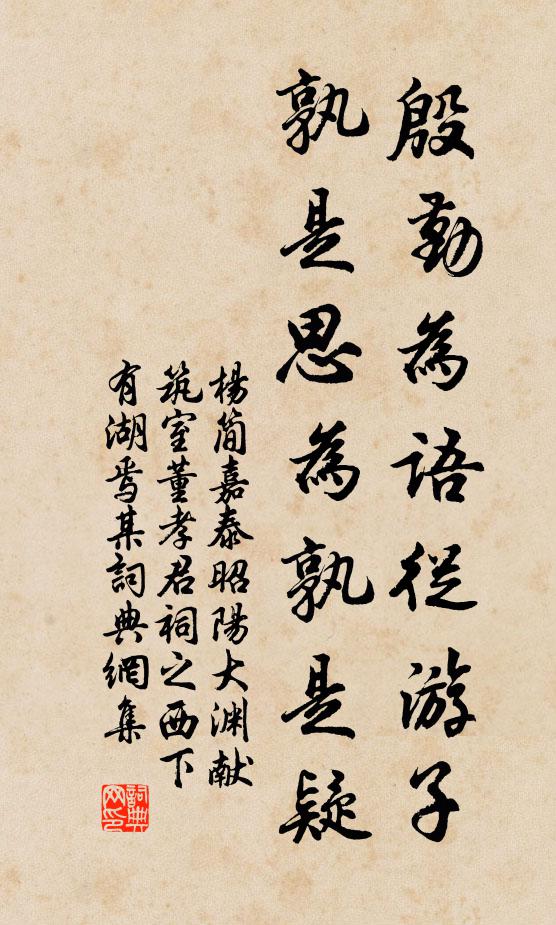 殷勤為語從游子
孰是思為孰是疑
楊簡嘉泰昭陽大渊献
筑室董孝君祠之西下
有湖焉某詞典網集
詞典网印